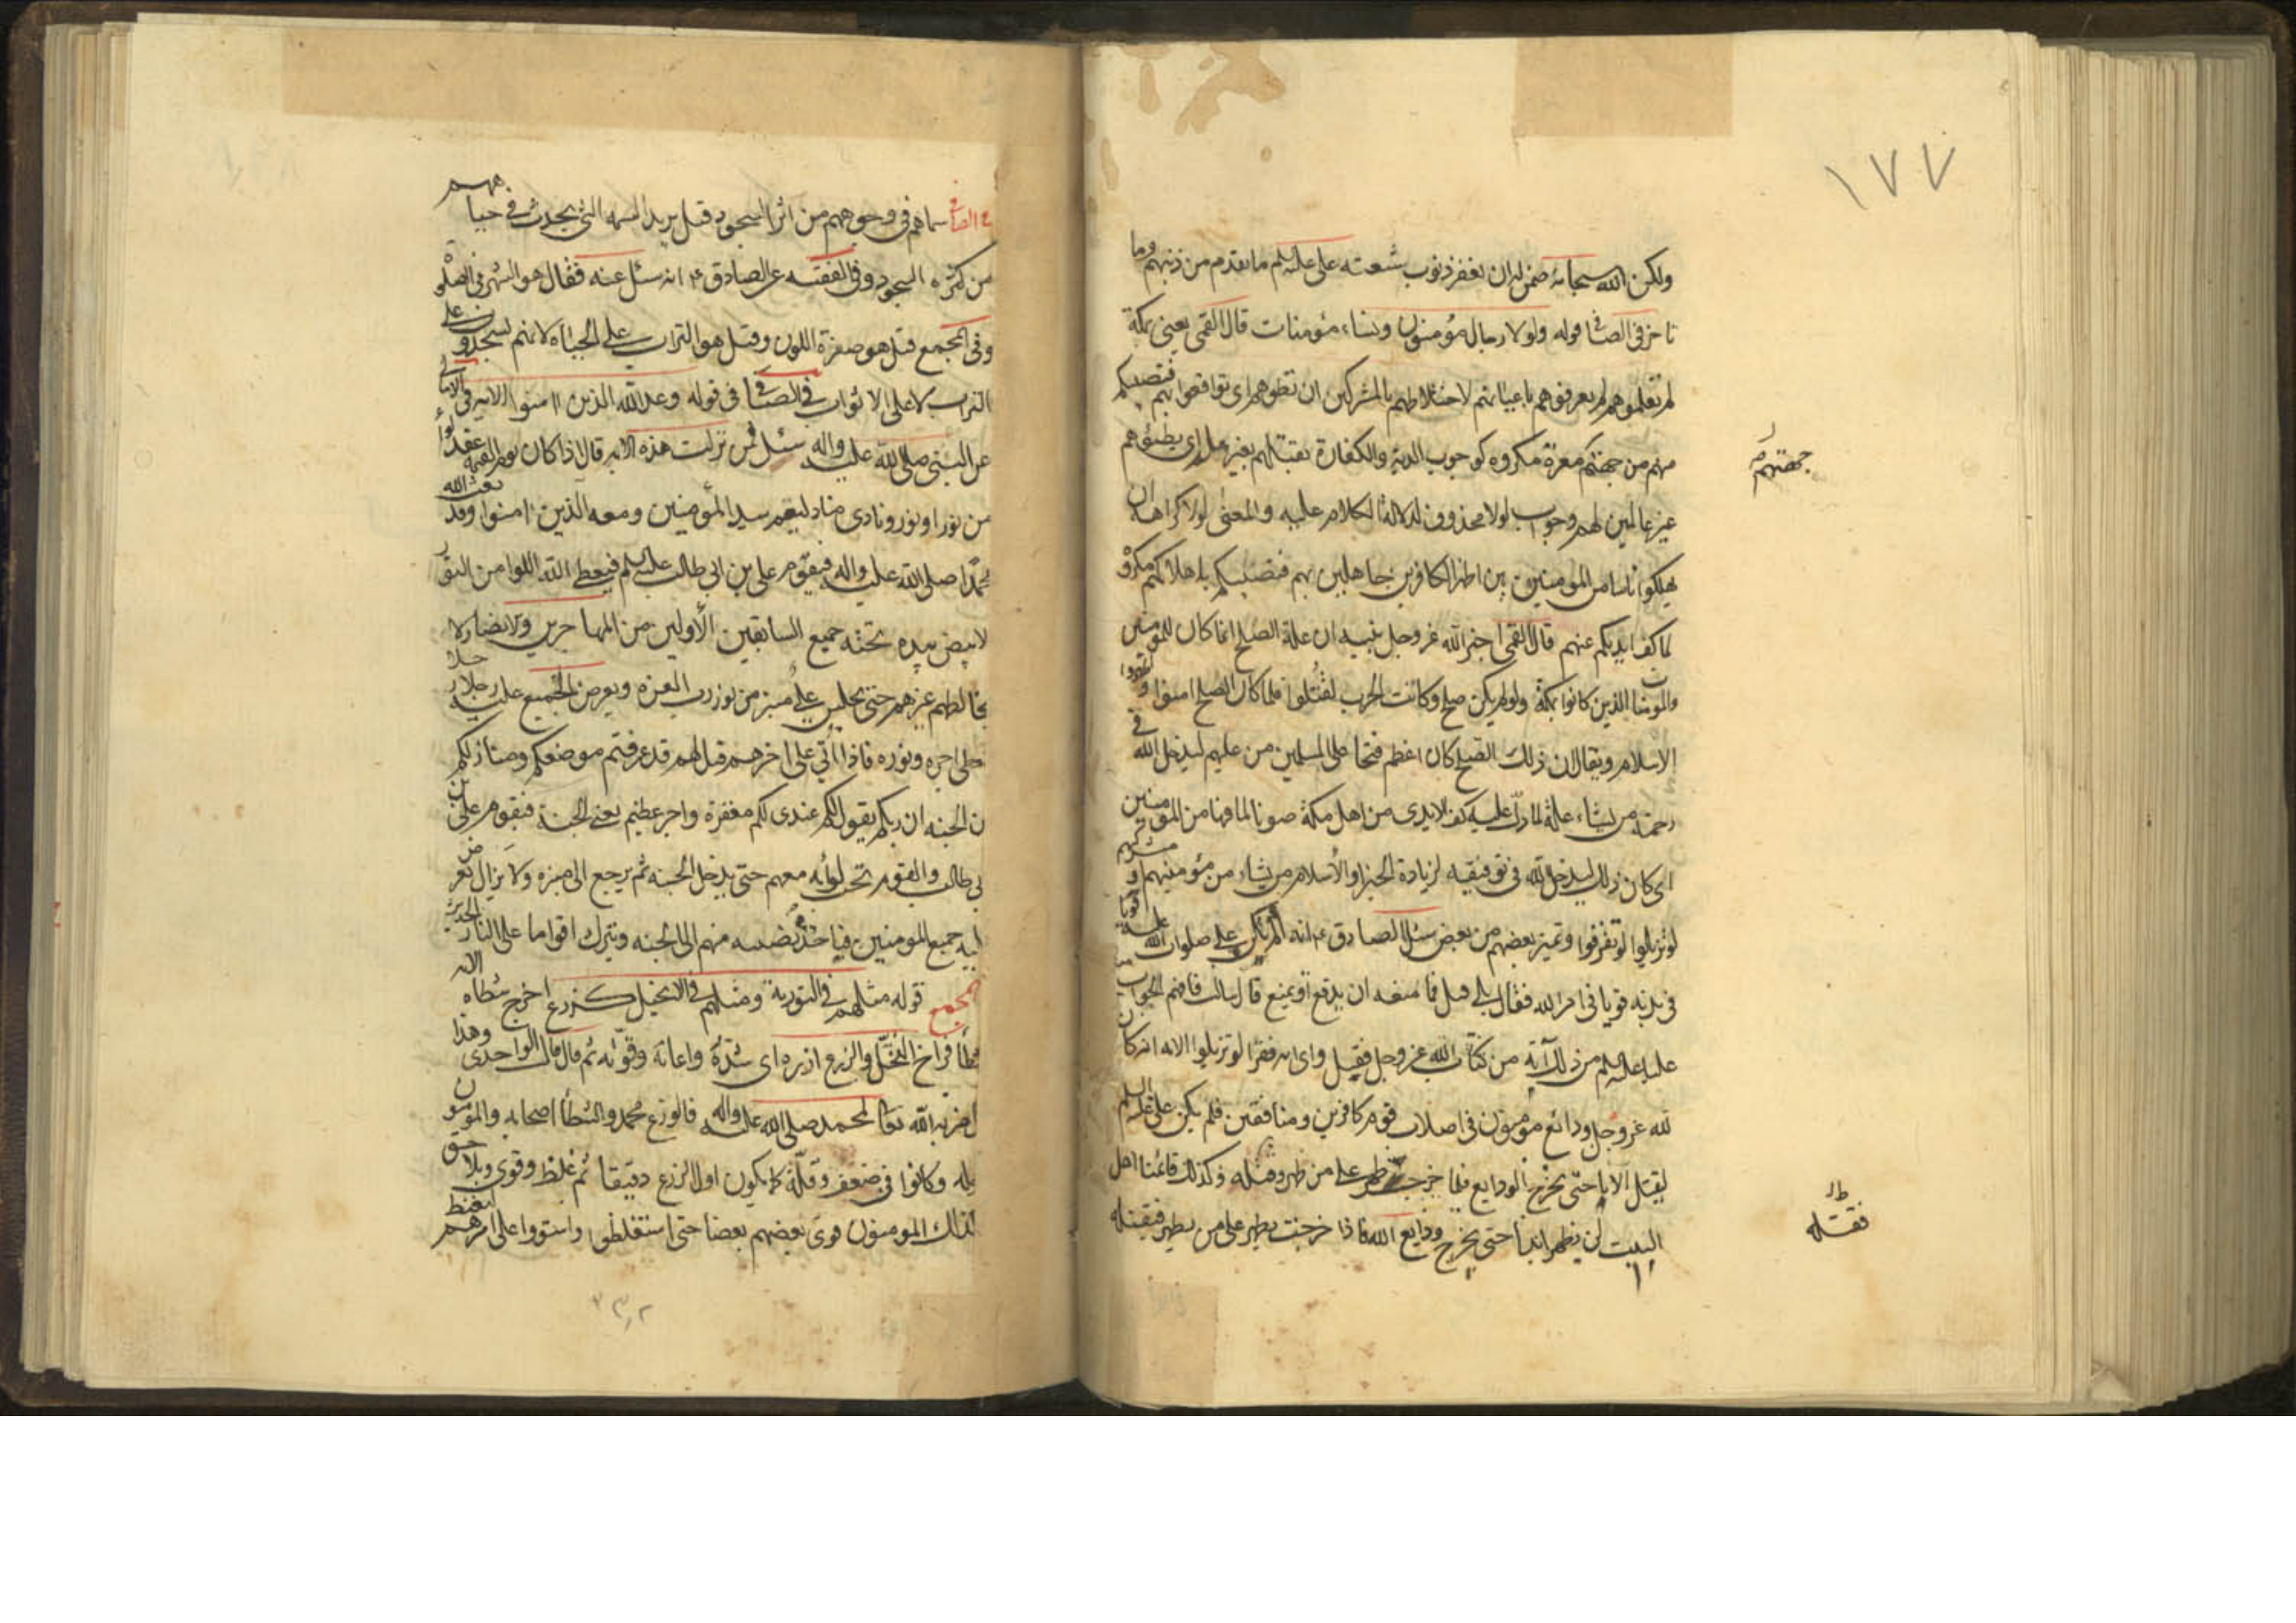 ١٧٧
ولكن الله سبحانه ضمن له ان يغفر ذنوب شيعته على عليه السلم ما تقدم من ذنبهم وما
تاخر فى الصافى قوله ولولا رجال مؤمنون ونساء مؤمنات قال القمى يعنى بمكة
لم تعلموهم لم يعرفوهم باعيانهم لاختلاطهم بالمشركين ان تطؤهم اى تواقعوا بهم فتصيبكم
منهم من جهتكم معرة مكروه كوجوب الدية والكفارة بقتلهم بغير علم اى يطئوهم
غير عالمين لهم وجواب لولا محذوف لدلالة الكلام عليه والمعنى لولا كراهة ان
يهلكوا ناسا من المومنين بين اظهر الكافرين جاهلين بهم فتصيبكم باهلاكهم مكروه
لما كف ايديكم عنهم قال القمى اخبر الله عز وجل نبيه ان علة الصلح انما كان للمومنين
والمومنات الذين كانوا بمكة ولو لم يكن صلح وكانت الحرب لقتلوا فلما كان الصلح امنوا و
الاسلام ويقال ان ذلك الصلح كان اعظم فتحا على المسلمين من عليهم ليدخل الله فى
رحمته من يشاء علة لما دل عليه كف الايدى من اهل مكة صونا لما فيها من المومنين
اى كان ذلك ليدخل الله فى توفيقه لزيادة الخير او الاسلام من يشاء من مؤمنيهم او مشركيهم
لو تزيلوا لو تفرقوا وتميز بعضهم من بعض سئل الصادق ع انه الم يكن على صلوات الله عليه قويا
فى بدنه قويا فى امر الله فقال بلى قيل فما منعه ان يدفع او يمنع قال سالت فافهم الجواب
عليا عليه السلم من ذلك آية من كتاب الله عز وجل فقيل واى اية فقرأ لو تزيلوا الاية انه كان
لله عز وجل ودائع مؤمنون فى اصلاب قوم كافرين ومنافقين فلم يكن على عليه السلم
ليقتل الآباء حتى تخرج الودايع فلما خرجت ظهر على من ظهر وقتله وكذلك قائمنا اهل
البيت لن يظهر ابدا حتى تخرج ودايع الله فاذا خرجت يظهر على من يظهر فيقتله
جهتهم
فقتله
فى الصافى سيماهم فى وجوههم من اثر السجود قيل يريد السمة التى يحدث فى جباههم
من كثرة السجود وفى الفقيه عن الصادق ع انه سئل عنه فقال هو السهر فى الصلوة
وفى المجمع قيل هو صفرة اللون وقيل هو التراب على الجباه لانهم يسجدون على
التراب لا على الاثواب فى الصافى فى قوله وعد الله الذين امنوا الاية فى الامالى
عن النبى صلى الله عليه واله سئل فيمن نزلت هذه الاية قال اذا كان يوم القيمة عقد لواء
من نور انور ونادى مناد ليقم سيد المؤمنين ومعه الذين امنوا وقد بعث الله
محمدا صلى الله عليه واله فيقوم على بن ابى طالب عليه السلم فيعطى الله اللوا من النور
الابيض بيده تحته جميع السابقين الأولين من المهاجرين والانصار لا
يخالطهم غيرهم حتى يجلس على منبر من نور رب العزة ويعرض الجميع عليه رجلا رجلا
فيعطى اجره ونوره فاذا اتى على اخرهم قيل لهم قد عرفتم موضعكم ومنازلكم
من الجنة ان ربكم يقول لكم عندى لكم مغفرة واجر عظيم يعنى الجنة فيقوم على بن
ابى طالب والقوم تحت لوائه معهم حتى يدخل الجنة ثم يرجع الى منبره ولا يزال يعرض
اليه جميع المومنين فياخذ نصيبه منهم الى الجنة ويترك اقواما على النار الحديث
المجمع قوله مثلهم فى التورية ومثلهم فى الانجيل كزرع اخرج شطاه الاية
شطأ فراخ النخل والزرع ازره اى شده واعانه وقواه ثم قال قال الواحدى وهذا
مثل ضربه الله تعالى لمحمد صلى الله عليه واله فالزرع محمد والشطأ اصحابه والمؤمنون
حوله وكانوا فى ضعف وقلة كما يكون اول الزرع دقيقا ثم غلظ وقوى وتلاحق
فكذلك المومنون قوى بعضهم بعضا حتى استغلظوا واستووا على امرهم ليغيظ